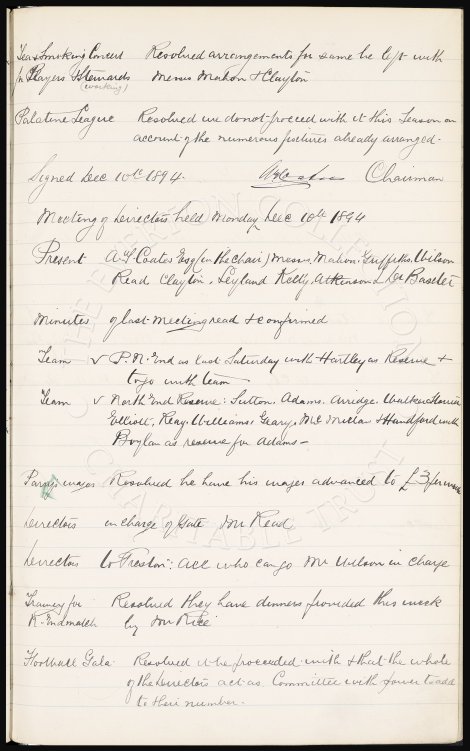 Tea & Smoking Concert Resolved arrangements for same be left with
for Players & Stewards Messrs Mahon & Clayton
(working)
Palatine League Resolved we do not proceed with it this Season on
account of the numerous fixtures already arranged.
Signed Dec 10th 1894. Chairman
Meeting of Directors held Monday Dec 10th 1894
Present A. T. Coates Esq (in the chair) Messrs. Mahon. Griffiths. Wilson
Read Clayton, Leyland Kelly, Atkinson & Dr Baxter
Minutes of last meeting read & confirmed
Team v P. N. End as last Saturday with Hartley as Reserve &
to go with team
Team v North End Reserve: Sutton. Adams. Arridge. Walker
Elliott, Reay. Williams. Geary. McMillan & Handford with
Boylan as reserve for Adams —
Parrys wages Resolved he have his wages advanced to £3 per week
Directors in charge of Gate Mr Read
Directors to Preston: all who can go Mr Wilson in charge
Training for Resolved they have dinners provided this week
N. End match by Mr Rice
Football Gala Resolved it be proceeded with & that the whole
of the Directors act as Committee with power to add
to their number.
THE EVERTON COLLECTION
CHARITABLE TRUST